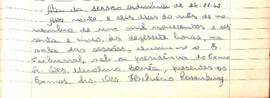 Ata da sessão ordinária de 26-11-65
Aos vinte e seis dias do mês de no-
vembro de mil novecentos e ses
senta e cinco, às dezessete horas, na
sala das sessões, reuniu-se o E.
Tribunal, sob a presidência do Exmo
Sr. Des. presentes os
Exmos. Srs. Des.